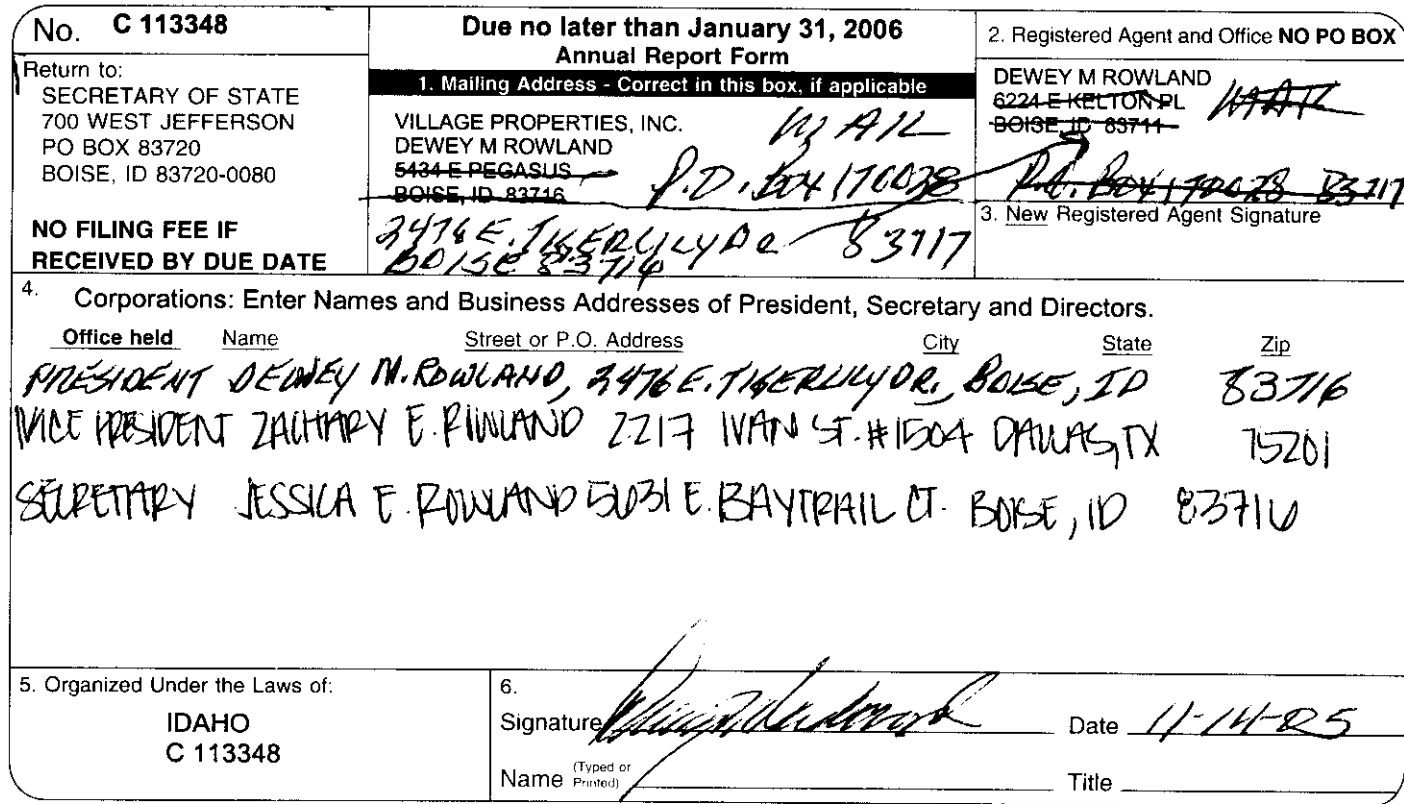 No. C 113348
Return to:
SECRETARY OF STATE
700 WEST JEFFERSON
PO BOX 83720
BOISE, ID 83720-0080
NO FILING FEE IF
RECEIVED BY DUE DATE
Due no later than January 31, 2006
Annual Report Form
1. Mailing Address - Correct in this box, if applicable
VILLAGE PROPERTIES, INC.
DEWEY M ROWLAND
5434 E PEGASUS
BOISE, ID 83716
MAIL
P.O. BOX 170038
83717
2476 E. TIGERLILY DR
BOISE 83716
2. Registered Agent and Office NO PO BOX
DEWEY M ROWLAND
6224 E KELTON PL
BOISE, ID 83711
MAIL
P.O. BOX 170028 83717
3. New Registered Agent Signature
4. Corporations: Enter Names and Business Addresses of President, Secretary and Directors.
Office held Name Street or P.O. Address City State Zip
PRESIDENT DEWEY M. ROWLAND, 2476 E. TIGERLILY DR., BOISE, ID 83716
VICE PRESIDENT ZACHARY E. ROWLAND 2217 IVAN ST. #1504 DALLAS, TX 75201
SECRETARY JESSICA E. ROWLAND 5031 E. BAYTRAIL CT. BOISE, ID 83716
5. Organized Under the Laws of:
IDAHO
C 113348
6.
Signature
Date 11-14-05
Name (Typed or Printed)
Title